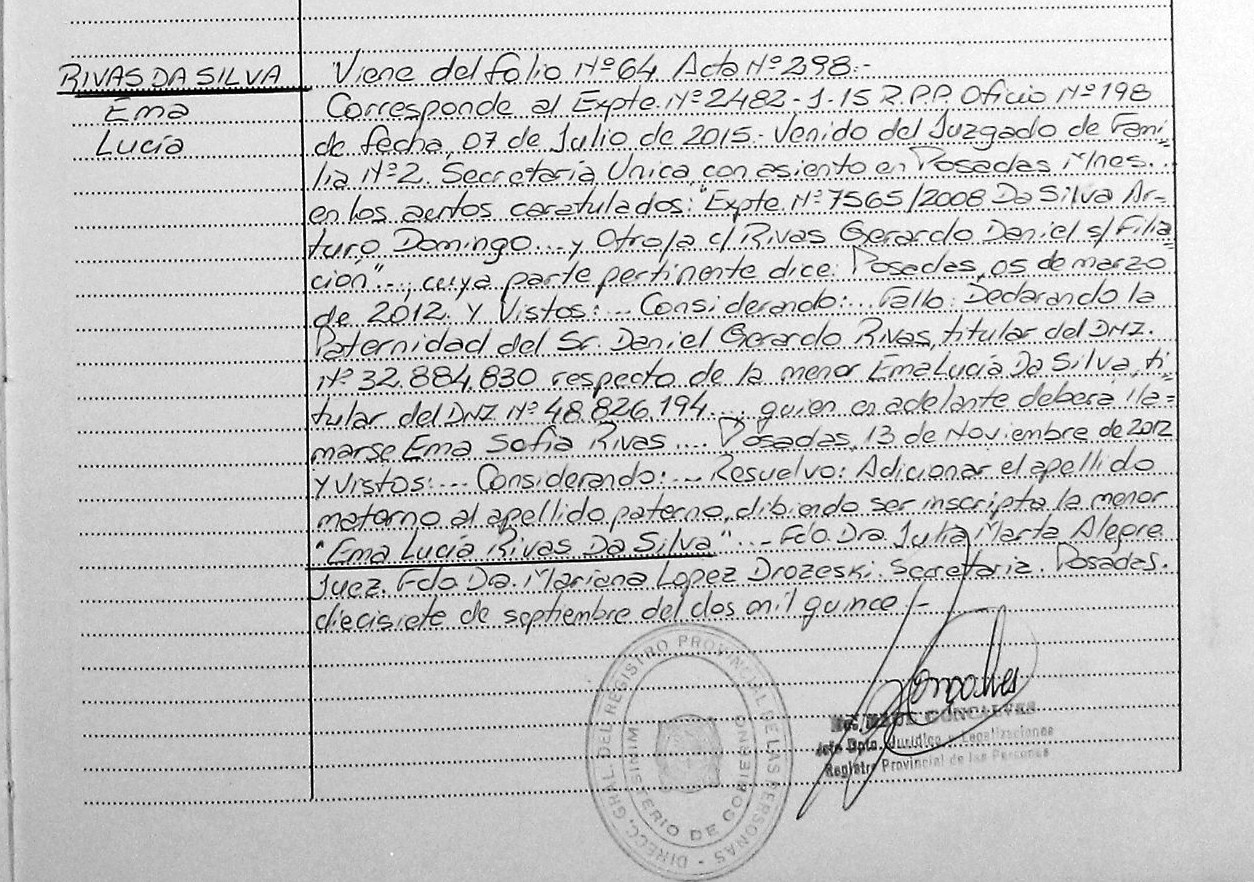 RIVAS DA SILVA
Ema
Lucía
Viene del folio Nº 64 Acta Nº 298.-
Corresponde al Expte. Nº 2482-1-15 R.P.P. Oficio Nº 198
de fecha, 07 de Julio de 2015. Venido del Juzgado de Fami
lia Nº 2. Secretaría Unica con asiento en Posadas Mnes.
en los autos caratulados: "Expte Nº 7565/2008 Da Silva Ar=
turo Domingo.... y Otro/a c/ Rivas Gerardo Daniel s/ Filia
cion"..., cuya parte pertinente dice: Posadas, 05 de marzo
de 2012. Y Vistos:... Considerando:... Fallo: Declarando la
Paternidad del Sr. Daniel Gerardo Rivas, titular del DNI.
Nº 32.884.830 respecto de la menor Ema Lucía Da Silva, ti
tular del DNI Nº 48.826.194.... quien en adelante debera lla=
marse Ema Sofia Rivas.... Posadas, 13 de Noviembre de 2012
Y Vistos:... Considerando:... Resuelvo: Adicionar el apellido
materno al apellido paterno, dibiendo ser inscripta la menor
"Ema Lucía Rivas Da Silva"... Fdo. Dra. Julia Marta Alegre
Juez. Fdo. Dra. Mariana Lopez Drozeski. Secretaria. Posadas.
diecisiete de septiembre del dos mil quince.-
DIRECC. GRAL. DEL REGISTRO PROVINCIAL DE LAS PERSONAS -
MINISTERIO DE GOBIERNO
Goncalves
GONCALVES
Jefe Dpto. Jurídico y Legalizaciones
Registro Provincial de las Personas